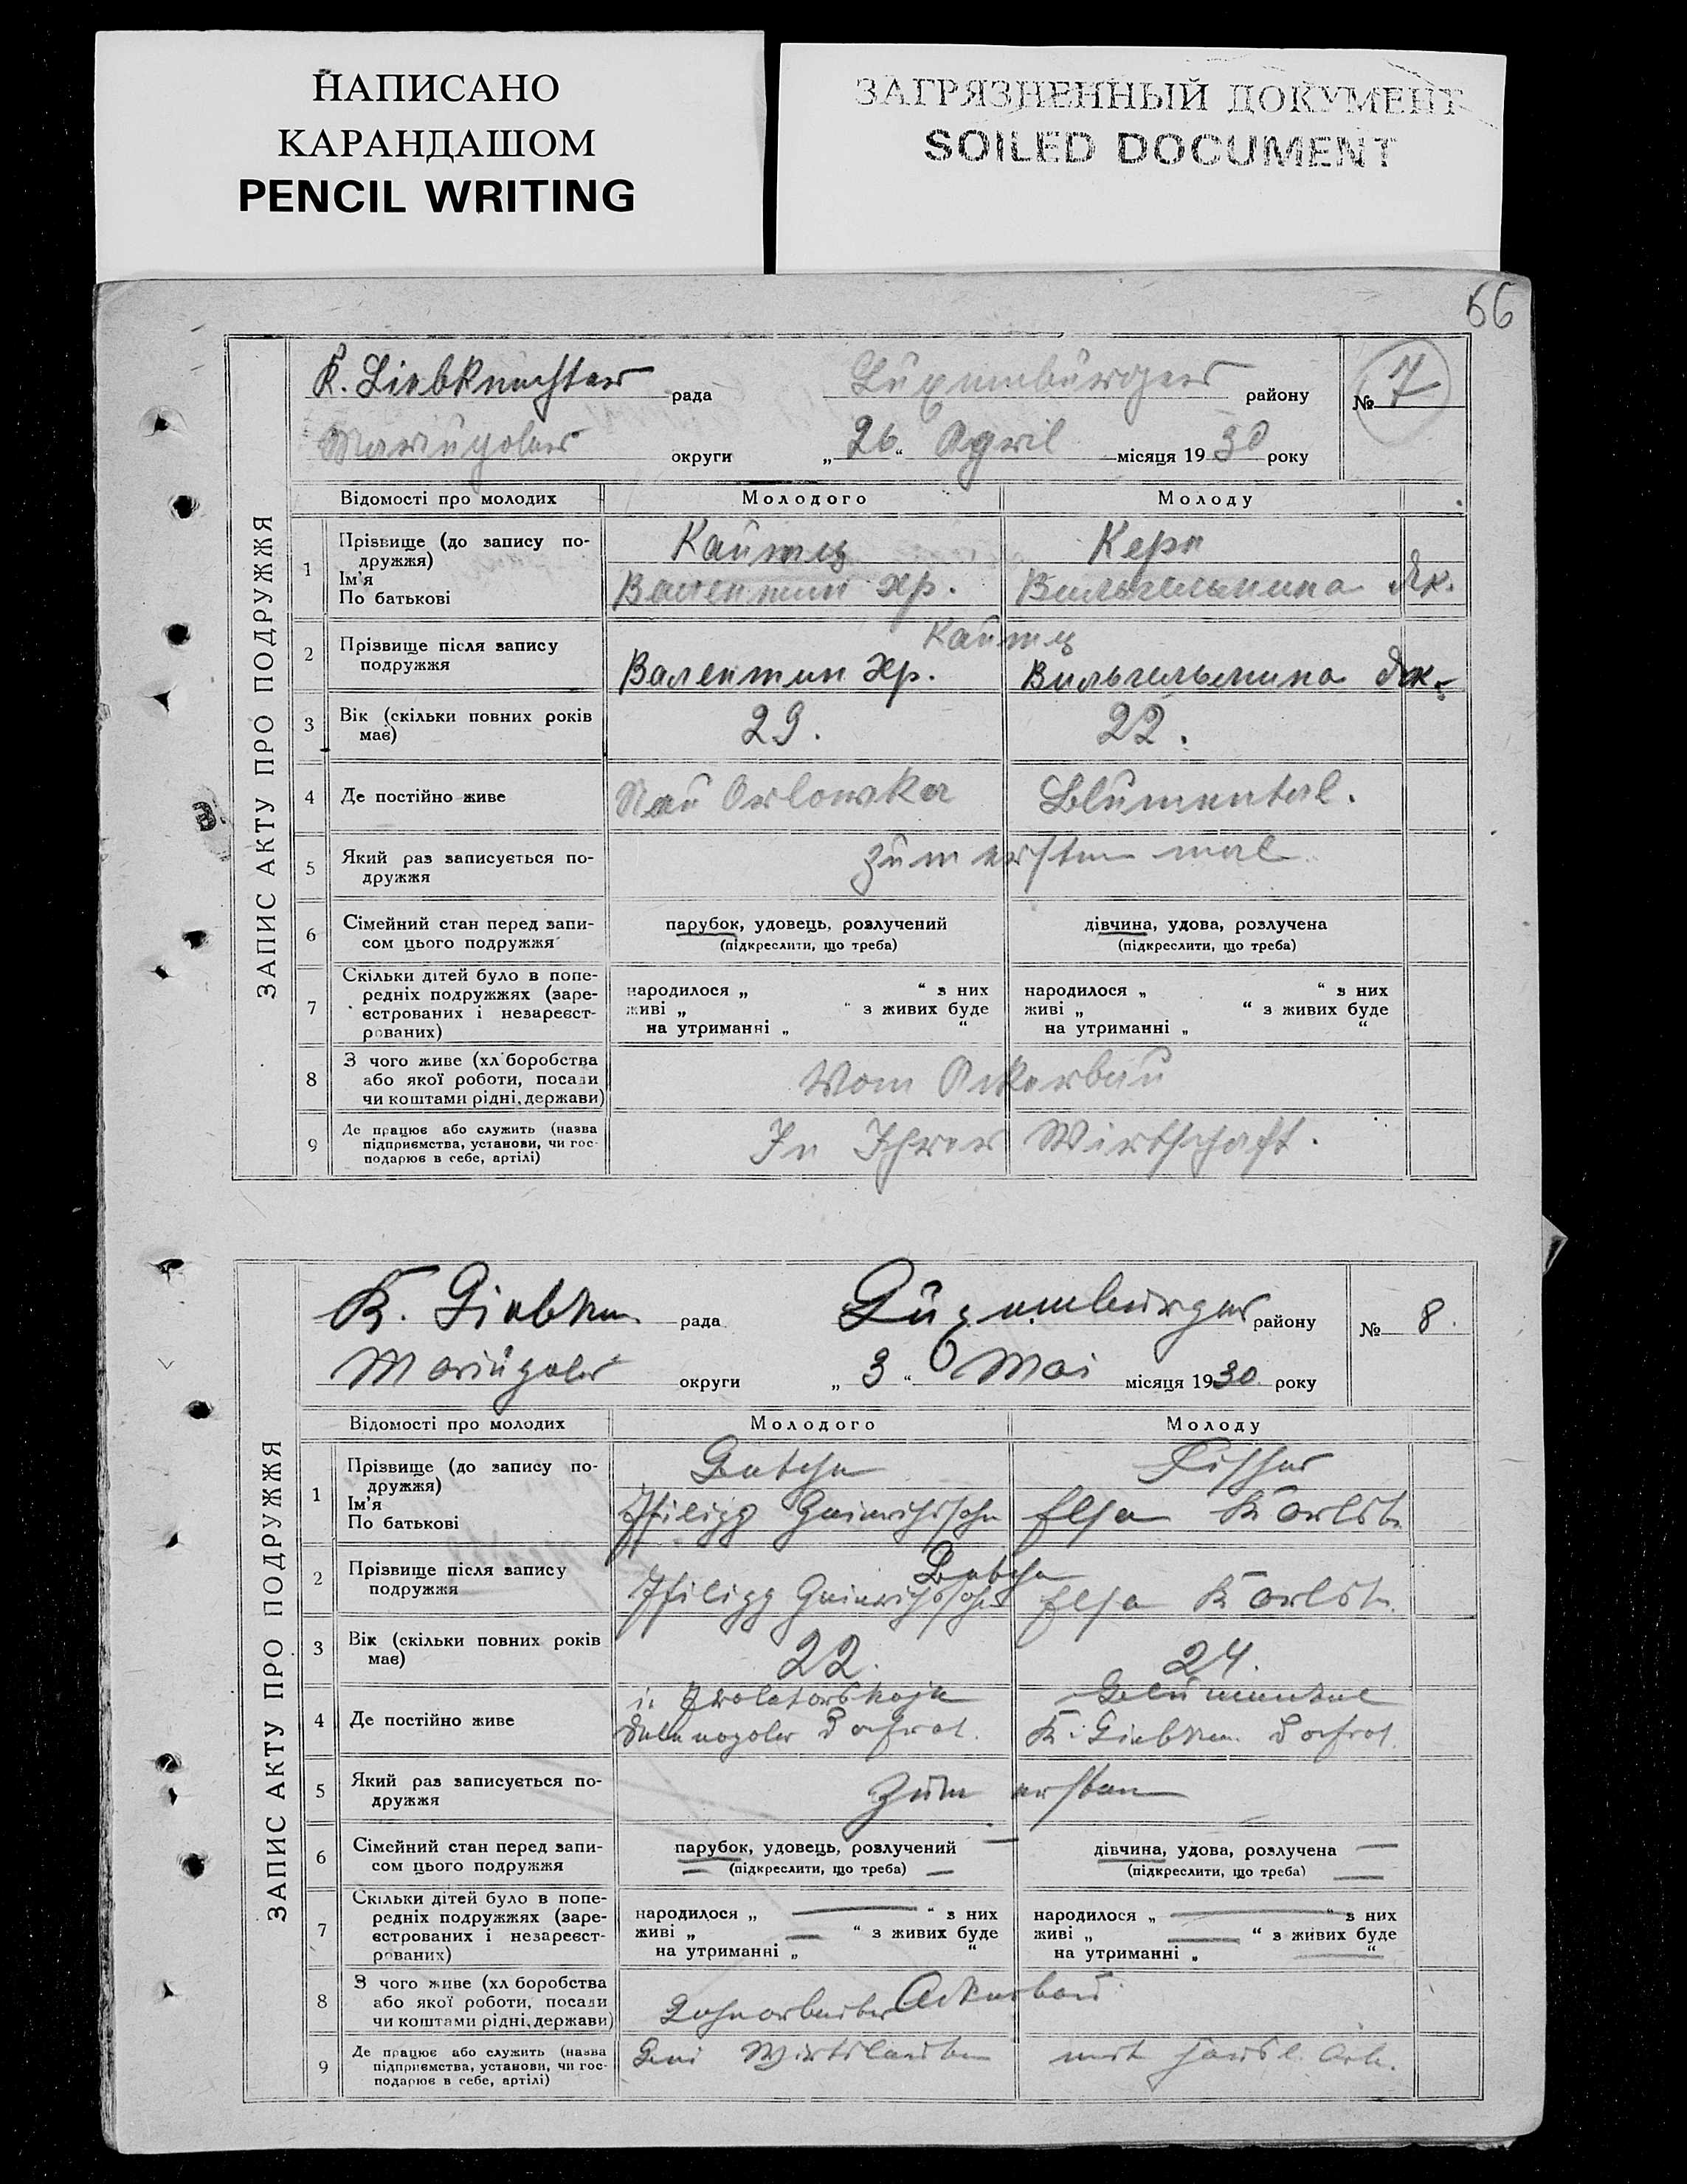 НАПИСАНО
КАРАНДАШОМ
PENCIL WRITING
ЗАГРЯЗНЕННЫЙ ДОКУМЕНТ
SOILED DOCUMENT
66
ЗАПИС АКТУ ПРО ПОДРУЖЖЯ
K. Liebknechter рада Luxemburger району № 7
Mariupoler округи „26“ April місяця 1930 року
Відомості про молодих Молодого Молоду
1 Прізвище (до запису по-
дружжя)
Ім'я
По батькові
Кайтц Керн
Валентин Хр. Вильгельмина Як.
2 Прізвище після запису
подружжя
Кайтц
Валентин Хр. Вильгельмина Як.
3 Вік (скільки повних років
має)
29. 22.
4 Де постійно живе Neu Orlowka Blumental.
5 Який раз записується по-
дружжя
zum ersten mal.
6 Сімейний стан перед запи-
сом цього подружжя
парубок, удовець, розлучений дівчина, удова, розлучена
(підкреслити, що треба) (підкреслити, що треба)
7 Скільки дітей було в попе-
редніх подружжях (заре-
єстрованих і незареєст-
рованих)
народилося „ “ з них народилося „ “ з них
живі „ “ з живих буде живі „ “ з живих буде
на утриманні „ “ на утриманні „ “
8 З чого живе (хліборобства
або якої роботи, посади
чи коштами рідні, держави)
Vom Ackerbau
9 Де працює або служить (назва
підприємства, установи, чи гос-
подарює в себе, артілі)
In Ihrer Wirtschaft.
ЗАПИС АКТУ ПРО ПОДРУЖЖЯ
K. Liebkn. рада Luxemburger району № 8.
Mariupoler округи „3“ Mai місяця 1930 року
Відомості про молодих Молодого Молоду
1 Прізвище (до запису по-
дружжя)
Ім'я
По батькові
Fischer
Philipp Heinrichssohn Elsa Karlst.
2 Прізвище після запису
подружжя
Philipp Heinrichssohn Elsa Karlst.
3 Вік (скільки повних років
має)
22. 24.
4 Де постійно живе
in Blumental
Dorfrat. K. Liebkn. Dorfrat.
5 Який раз записується по-
дружжя
zum ersten
6 Сімейний стан перед запи-
сом цього подружжя
парубок, удовець, розлучений дівчина, удова, розлучена
(підкреслити, що треба) (підкреслити, що треба)
7 Скільки дітей було в попе-
редніх подружжях (заре-
єстрованих і незареєст-
рованих)
народилося „ “ з них народилося „ “ з них
живі „ “ з живих буде живі „ “ з живих буде
на утриманні „ “ на утриманні „ “
8 З чого живе (хліборобства
або якої роботи, посади
чи коштами рідні, держави)
Lohnarbeiter Ackerbau
9 Де працює або служить (назва
підприємства, установи, чи гос-
подарює в себе, артілі)
Bei Wirtsleuten mit häusl. Arb.